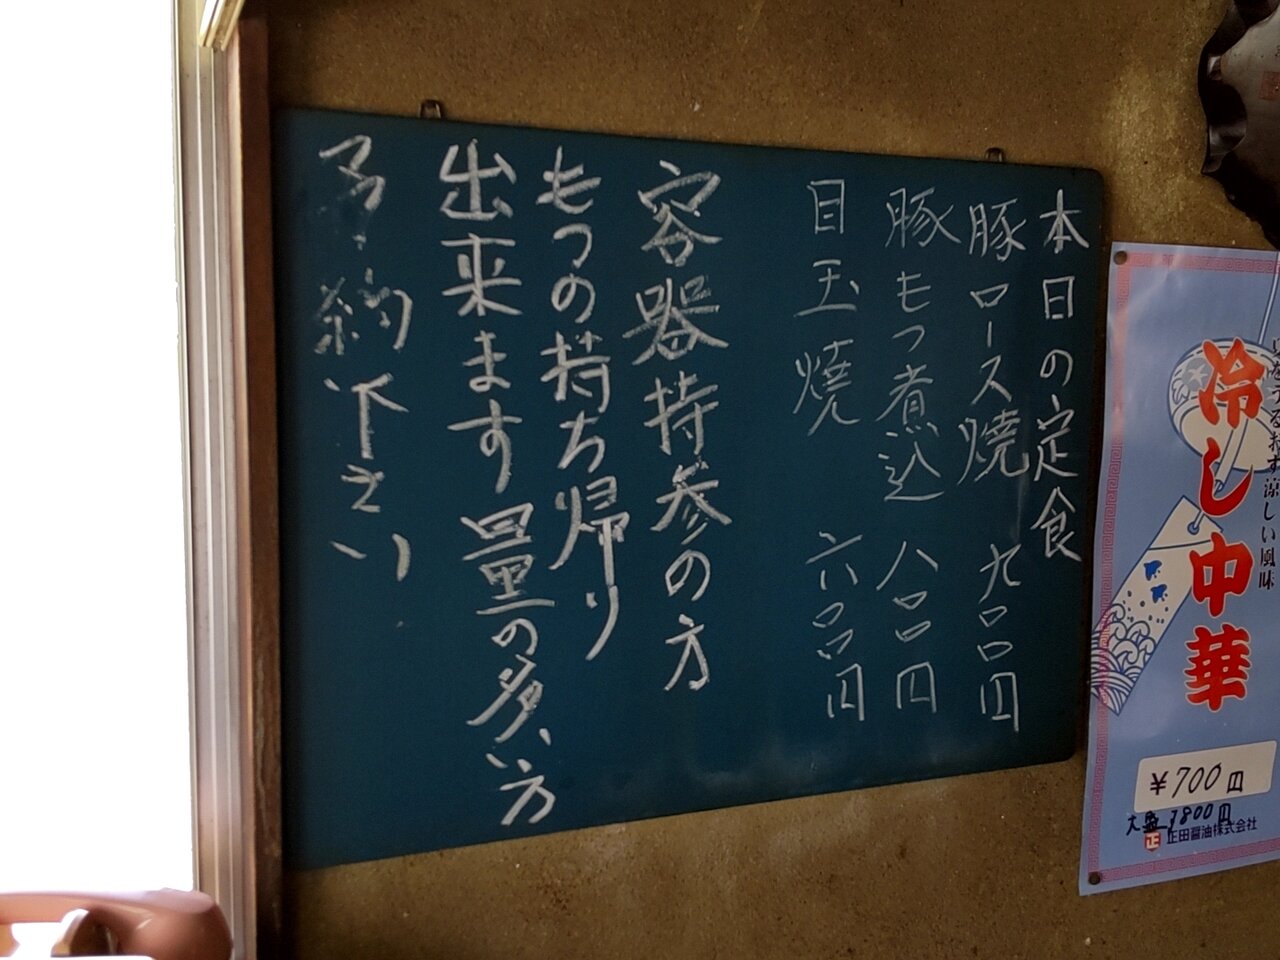 本日の定食
豚ロース焼 九〇〇円
豚もつ煮込 八〇〇円
目玉焼 六〇〇円
容器持参の方
もつの持ち帰り
出来ます量の多い方
予約下さい
冷し中華
涼しい風味
¥700円
大盛 800円
正田醤油株式会社